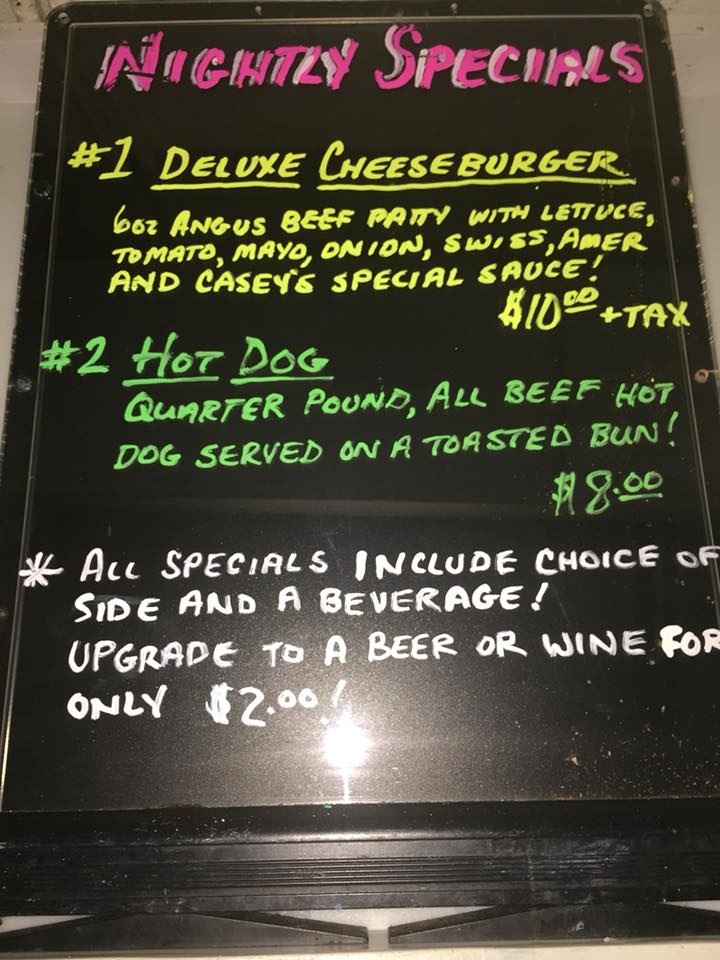 NIGHTLY SPECIALS
#1 DELUXE CHEESEBURGER
6oz ANGUS BEEF PATTY WITH LETTUCE,
TOMATO, MAYO, ONION, SWISS, AMER
AND CASEY'S SPECIAL SAUCE!
$10.00 + TAX
#2 HOT DOG
QUARTER POUND, ALL BEEF HOT
DOG SERVED ON A TOASTED BUN!
$8.00
* ALL SPECIALS INCLUDE CHOICE OF
SIDE AND A BEVERAGE!
UPGRADE TO A BEER OR WINE FOR
ONLY $2.00!